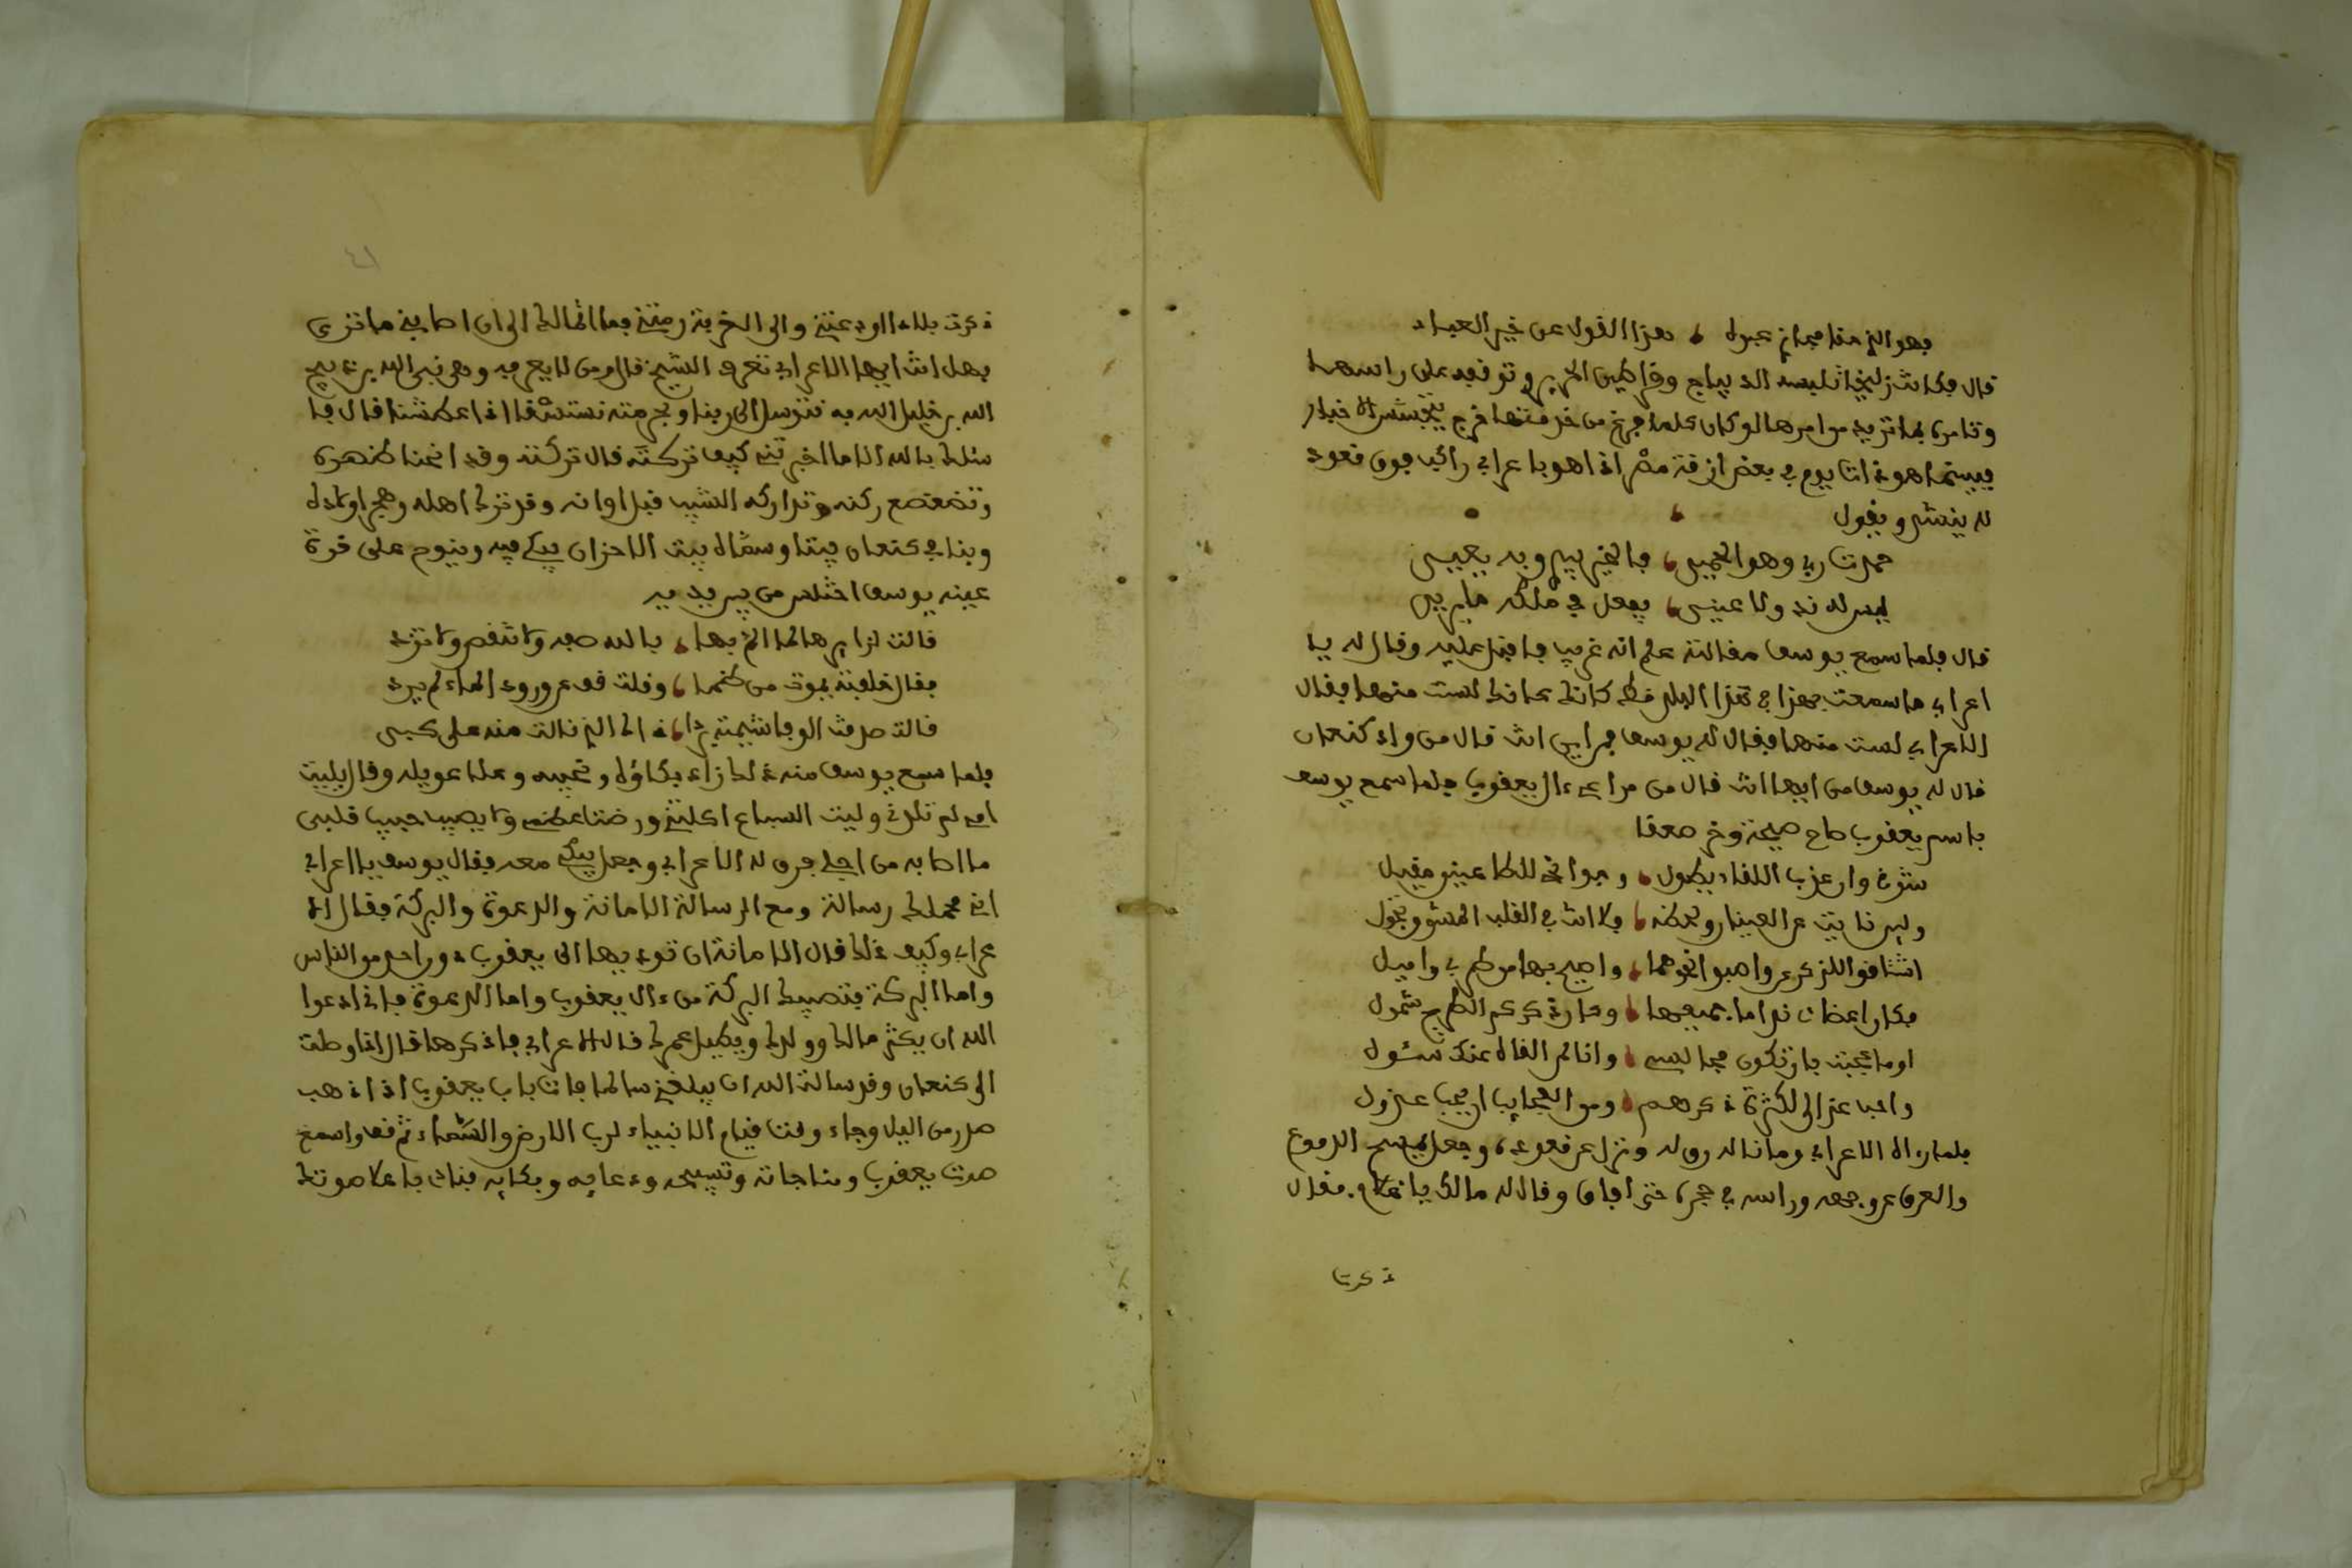 فهو الذي هذا فجاز عبده هذا القول عن خير العباد
قال فكانت زليخا تلبسه الديباج وقراطين الحرير و توقفه على راسها
وتامره بما تريد من امرها لو كان كلما فرغ من خدمتها خرج يتجسس الاخبار
فبينما هو ذات يوم في بعض ازقة مصر اذا هو باعرابي راكب فوق قعود
له ينشد ويقول
حمدت ربي وهو الحميد فالخير بيديه يعيد
ليس له ند ولا عنيد يفعل في ملكه ما يريد
قال فلما سمع يوسف مقالته علم انه غريب فاقبل عليه وقال له يا
اعرابي ما سمعت بهذا في هذا البلد قط كانك لست منها فقال
الاعرابي لست منها فقال له يوسف فمن اين انت قال من واد كنعان
قال له يوسف من ايها انت قال من مراعي ءال يعقوب فلما سمع يوسف
باسم يعقوب صاح صيحة وخر صعقا
شوقي وان عذب اللقاء يطول
ولين نايت عن العينان ولحظه فلا انت في القلب المشوق تجول
اشتاقوا اللذكر واصبوا نحوها واصيح بها من طربي واميل
فكان اعضاني نداما جميعها ودارة ذكركم الطرح شمول
اوما عجبت بان تكون مجالسي وانا لمن القاه عنك سئول
واحب عذالي لكثرة ذكرهم ومن العجايب ان يحب عذول
فلما رءاه الاعرابي وما ناله رق له ونزل عن قعوده وجعل يمسح الدموع
والعرق عن وجهه وراسه في حجره حتى افاق وقال له مالك يا غلام فقال
ذكرت
ذكرت بلاء اودعني والى الغربة رمتني فما زالك الى ان اصابني ما ترى
فهل انت ايها الاعرابي تعرف الشيخ قال ومن لا يعرفه وهو نبي الله بن ذبيح
الله بن خليل الله به نتوسل الى ربنا وبحرمته نستسقا اذا عطشنا قال فا
سئلك بالله الا ما اخبرتني كيف تركته قال تركته وقد انحنا ظهره
وتضعضع ركنه وتداركه الشيب قبل اوانه وقد ترك اهله وهجر اولاده
وبنا في كنعان بيتا وسماه بيت الاحزان يبكي فيه وينوح على قرة
عينه يوسف اختلس من بين يديه
قالت لزاير هالما الم بها بالله صفه ولا تنقص ولا تزد
فقال خلفته يموت من ظمأ وقلت قف عن ورود الماء لم يرد
قالت صدقت الوفا شيمته يا برد ذاك الذي قالت منه على كبدي
فلما سمع يوسف منه ذلك زاد بكاؤه ونحيبه وعلا عويله وقال ياليت
امي لم تلدني وليت السباع اكلتني ورضت عظمي ولا يصيب حبيب قلبي
ما اصابه من اجلي فرق له الاعرابي وجعل يبكي معه فقال يوسف يا اعرابي
اني محملك رسالة ومع الرسالة الامانة والدعوة والبركة فقال الا
عرابي وكيف ذلك قال الامانة ان توديها الى يعقوب دون احد من الناس
واما البركة فتصيبك البركة من ءال يعقوب واما الدعوة فاني ادعوا
الله ان يكثر مالك وولدك ويطيل عمرك قال الاعرابي فاذكرها قال اذا وصلت
الى كنعان وقد سالت الله ان يبلغك سالما فات باب يعقوب اذا ذهب
صدر من اليل وجاء وقت قيام الانبياء لرب الارض والسماء ثم قف واسمع
صوت يعقوب ومناجاته وتسبيحه ودعايه وبكايه فناد باعلا صوتك